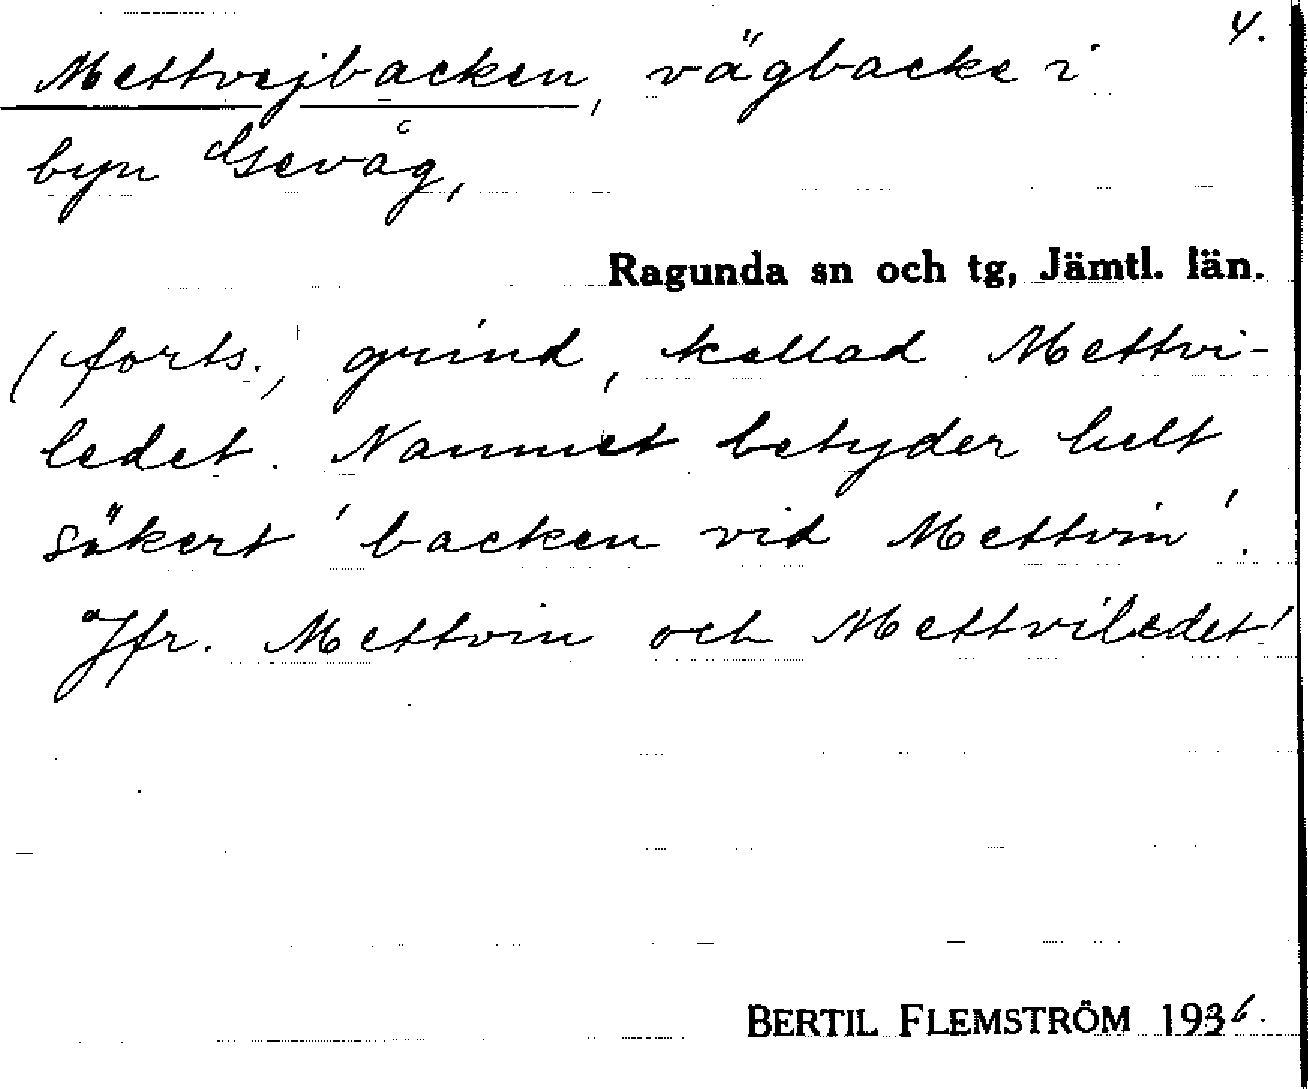 4.
Mettvejbacken, vägbacke i
byn Gevåg,
Ragunda sn och tg, Jämtl. län.
(forts.) grind, kallad Mettvi-
ledet. Namnet betyder helt
säkert 'backen vid Mettvin'.
Jfr. Mettvin och Mettviledet!
BERTIL FLEMSTRÖM 1936.